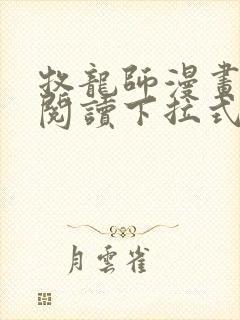 牧龍師漫畫
閱讀下拉式
月雲雀